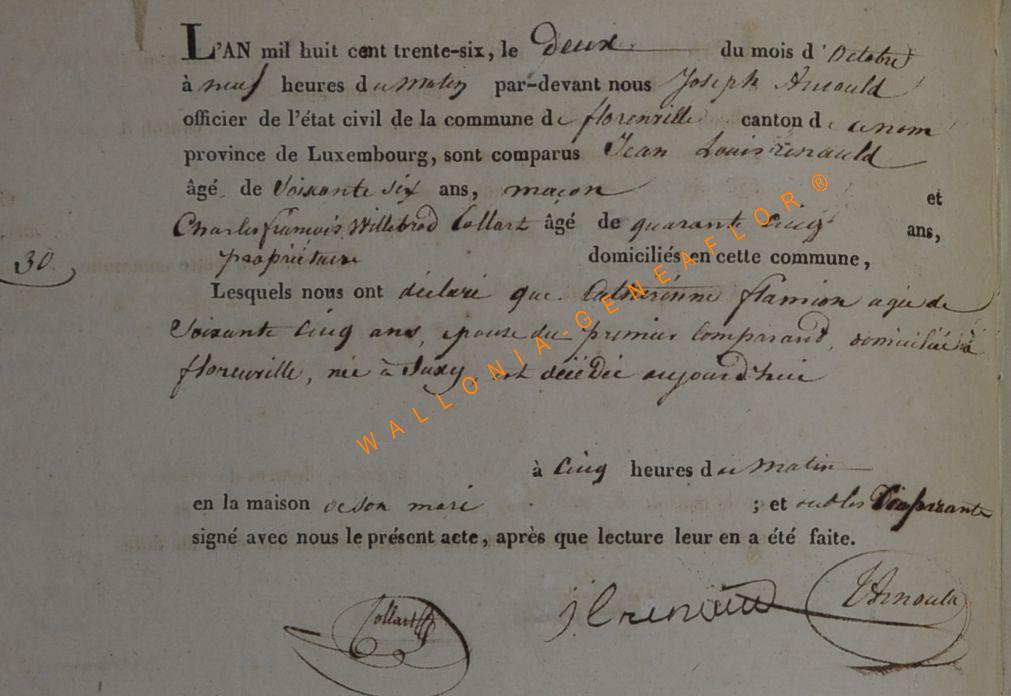 L'AN mil huit cent trente-six, le deux du mois d'octobre
à neuf heures du matin par-devant nous Joseph Arnould
officier de l'état civil de la commune de florenville canton de ce nom
province de Luxembourg, sont comparus Jean Louis renauld
âgé de Soixante six ans, maçon et
Charles françois Willebrod Collart âgé de quarante cinq ans,
propriétaire domiciliés en cette commune,
30.
Lesquels nous ont déclaré que Catherinne flamion agée de
Soixante cinq ans, epouse du premier comparand, domiciliée à
florenville, née à Suxy est décédée aujourd'hui
à cinq heures du matin
en la maison de son mari ; et ont les Comparants
signé avec nous le présent acte, après que lecture leur en a été faite.
Collart jlrenauld JArnould
WALLONIA-GENEAFLOR®